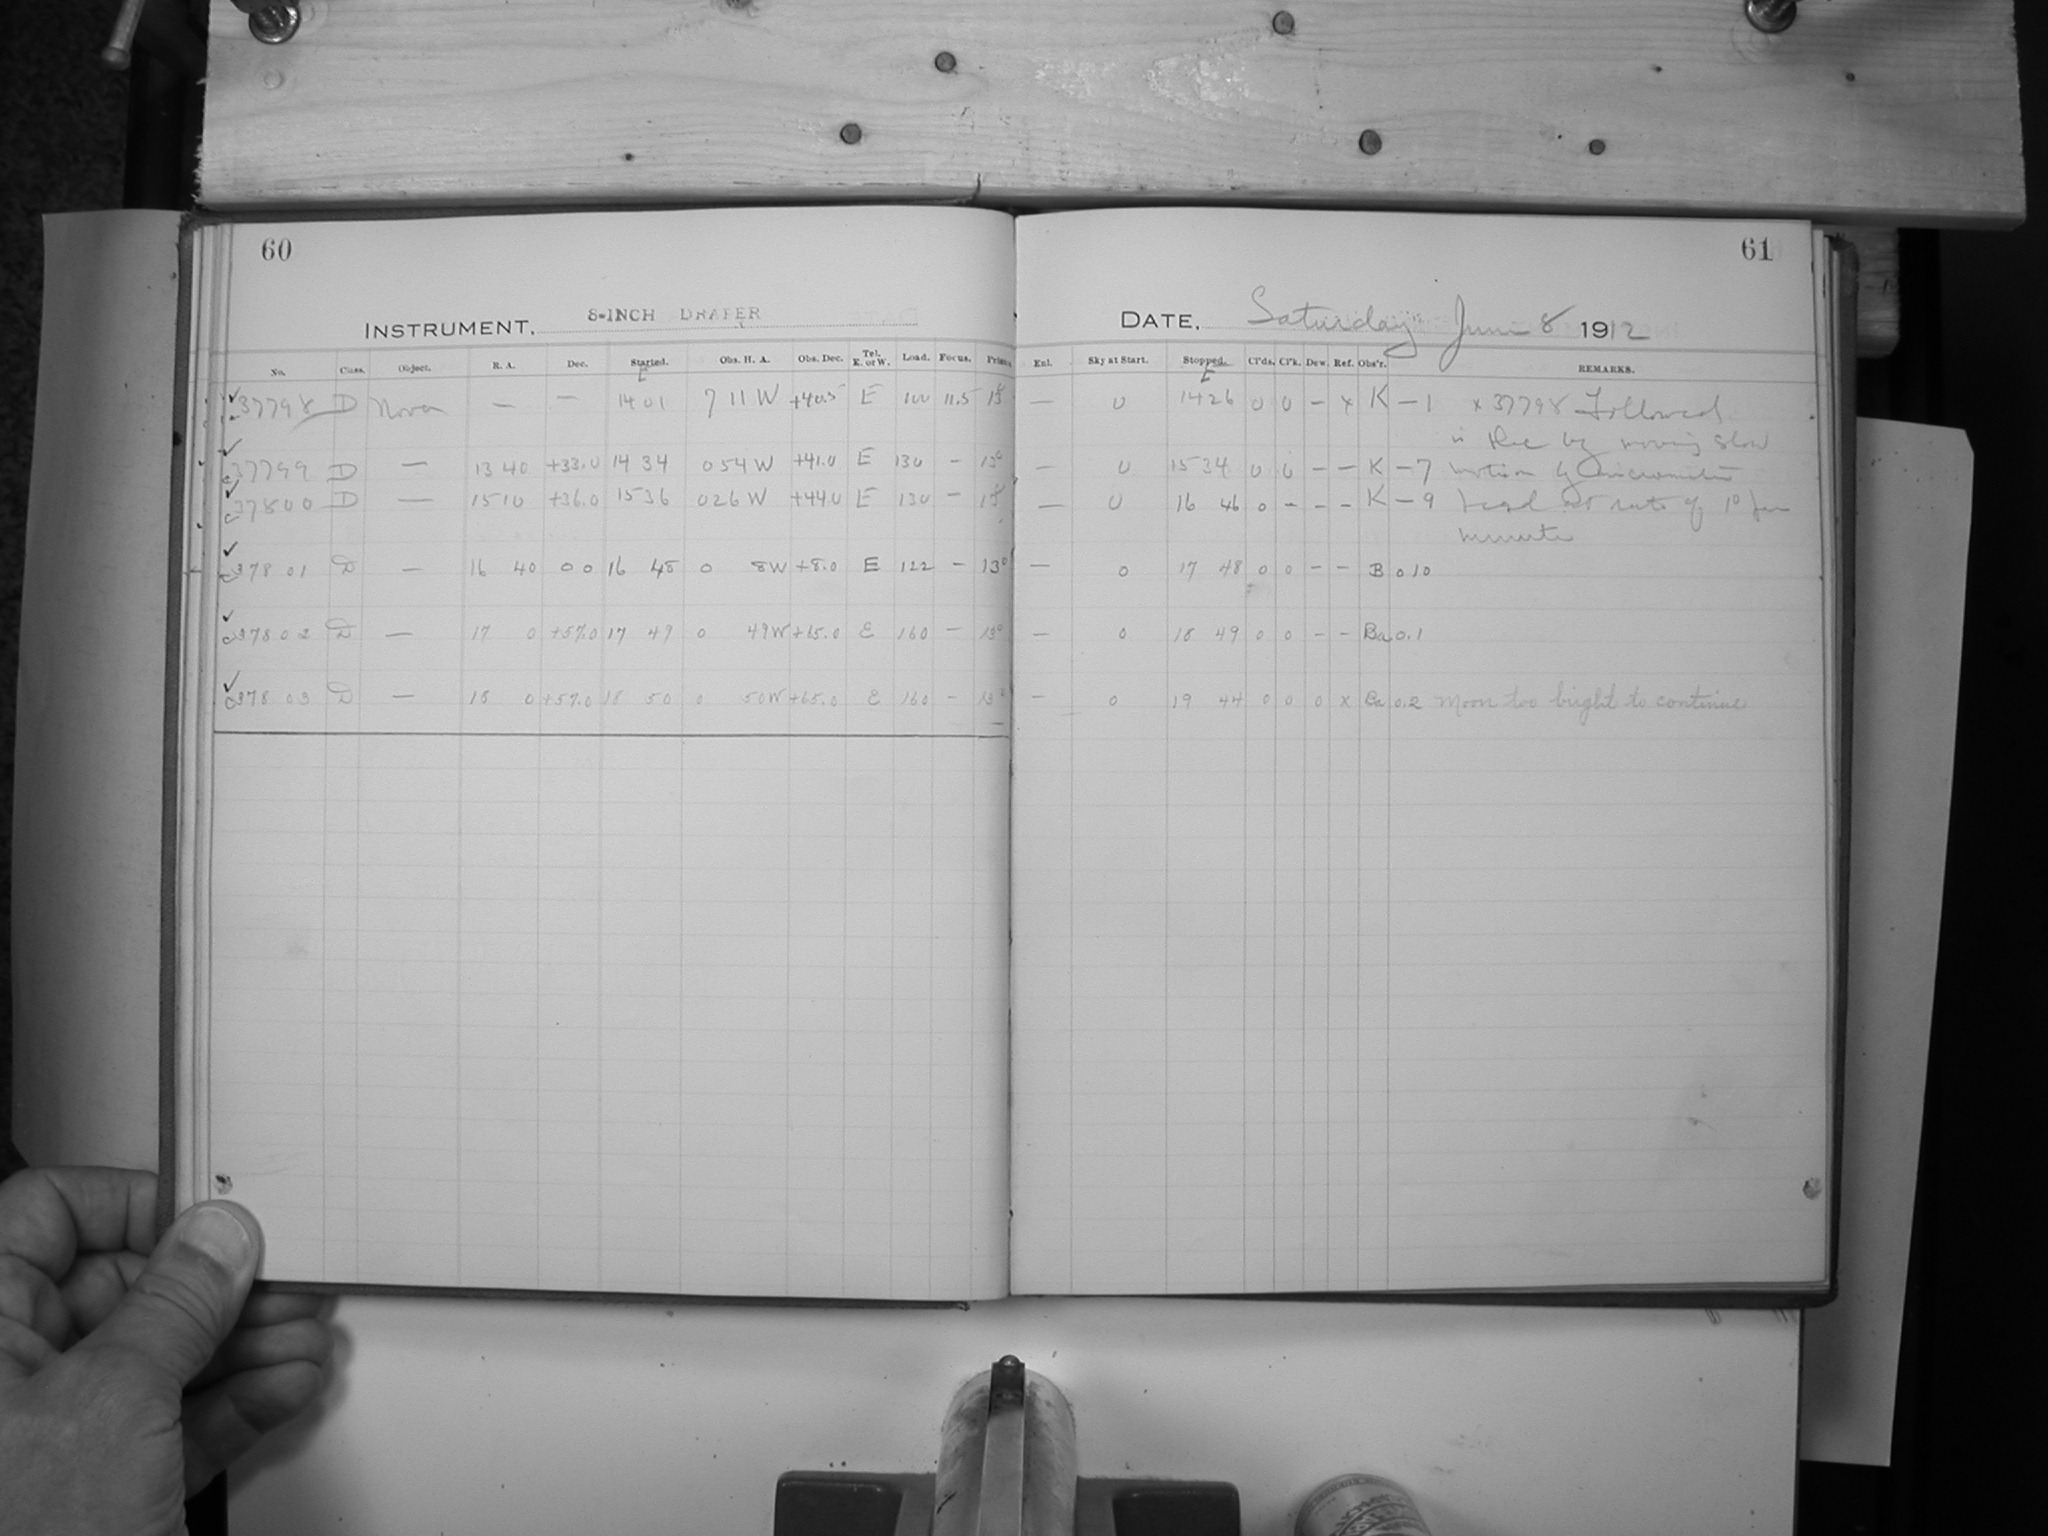 60
61
INSTRUMENT, 8-INCH DRAPER
DATE, Saturday June 8 1912
No. Class. Object. R. A. Dec. Started. Obs. H. A. Obs. Dec. Tel. E. or W. Load. Focus. Prism
Enl. Sky at Start. Stopped. Cl'ds. Cl'k. Dew. Ref. Obs'r. REMARKS.
E
E
37798 D Nova — — 14 01 7 11 W +40.5 E 100 11.5 — 0 14 26 0 0 – x K – 1 x 37798 Followed
in by moving slow
37799 D — 13 40 +33.0 14 34 0 54 W +41.0 E 130 – 13° — 0 15 34 0 0 – – K – 7 motion by micrometer
37800 D — 15 10 +36.0 15 36 0 26 W +44.0 E 130 – — 0 16 46 0 – – – K – 9 head at rate of 1° per
minute
c37801 D — 16 40 0 0 16 48 0 8 W +8.0 E 122 – 13° — 0 17 48 0 0 – – B 0 10
c37802 D — 17 0 +57.0 17 49 0 49 W +65.0 E 160 – 13° — 0 18 49 0 0 – – Ba 0.1
c37803 D — 18 0 +57.0 18 50 0 50 W +65.0 E 160 – — 0 19 44 0 0 0 x Ba 0.2 Moon too bright to continue